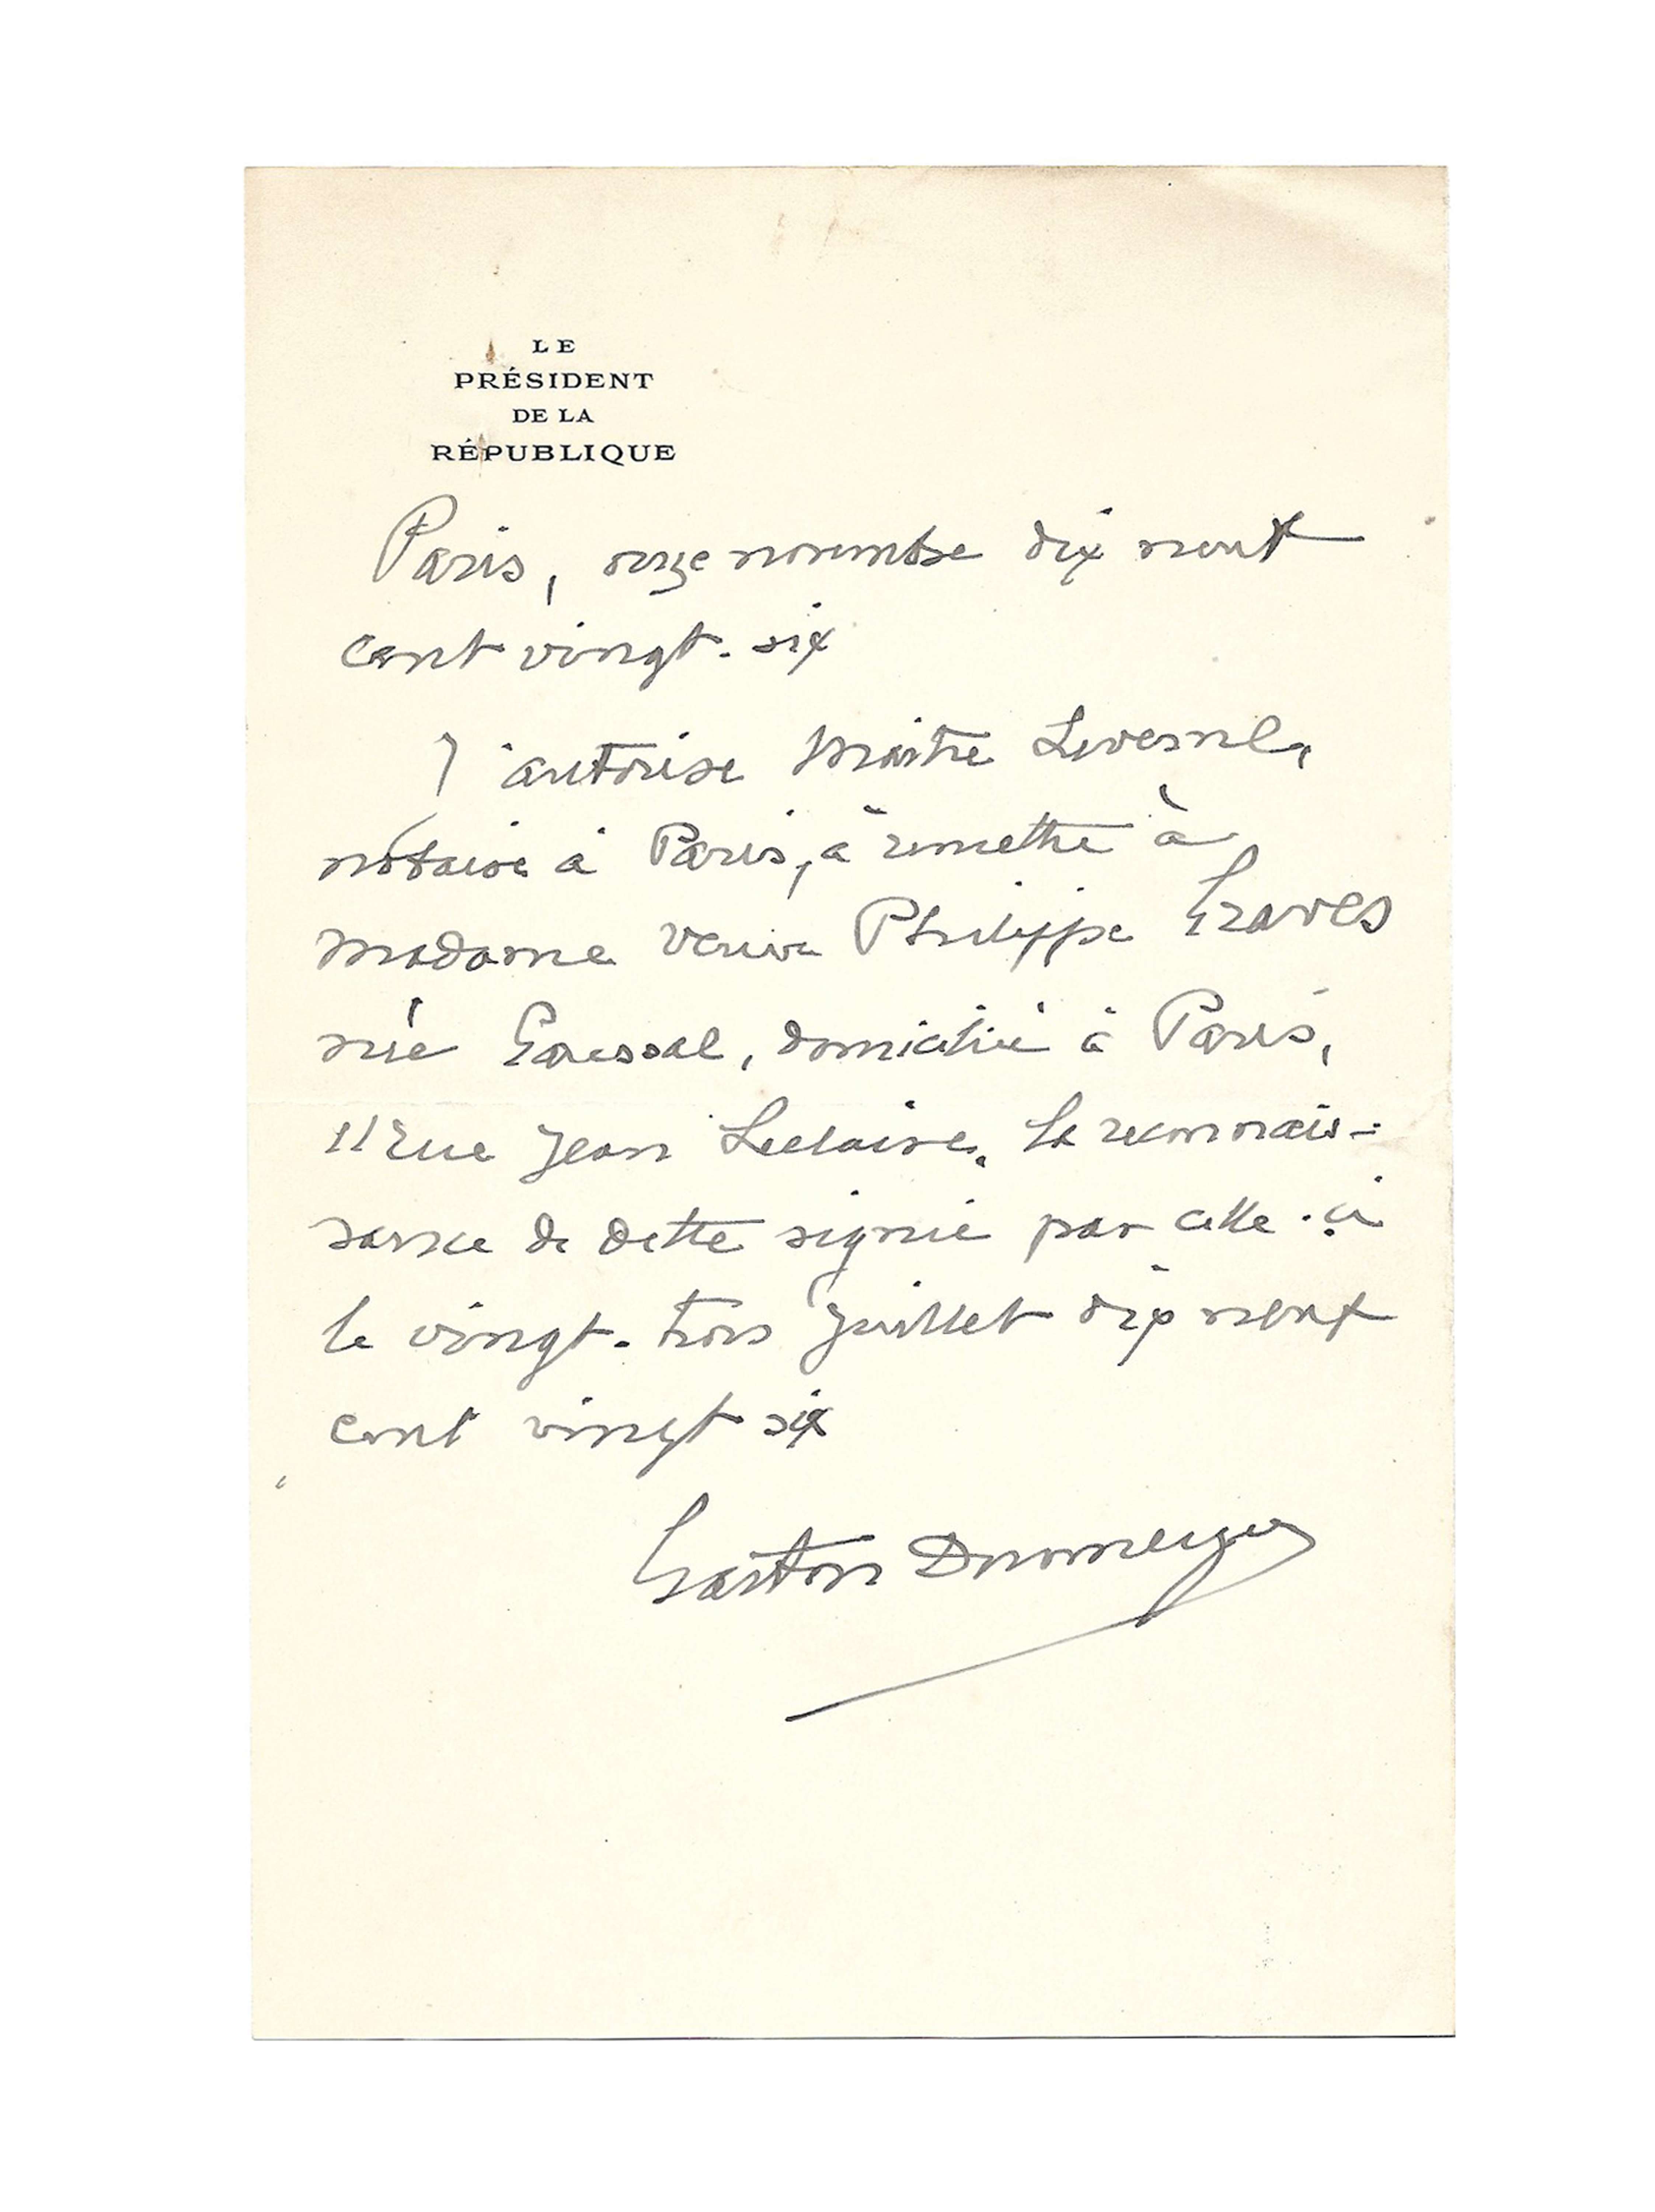 LE
PRÉSIDENT
DE LA
RÉPUBLIQUE
Paris, onze novembre dix neuf
cent vingt-six
J'autorise Maitre
notaire à Paris, à remettre à
Madame veuve Philippe Graves
née Goussal, domiciliée à Paris,
11 rue Jean Leclaire, la reconnais-
sance de dette signée par celle-ci
le vingt-trois juillet dix neuf
cent vingt six
Gaston Doumergue